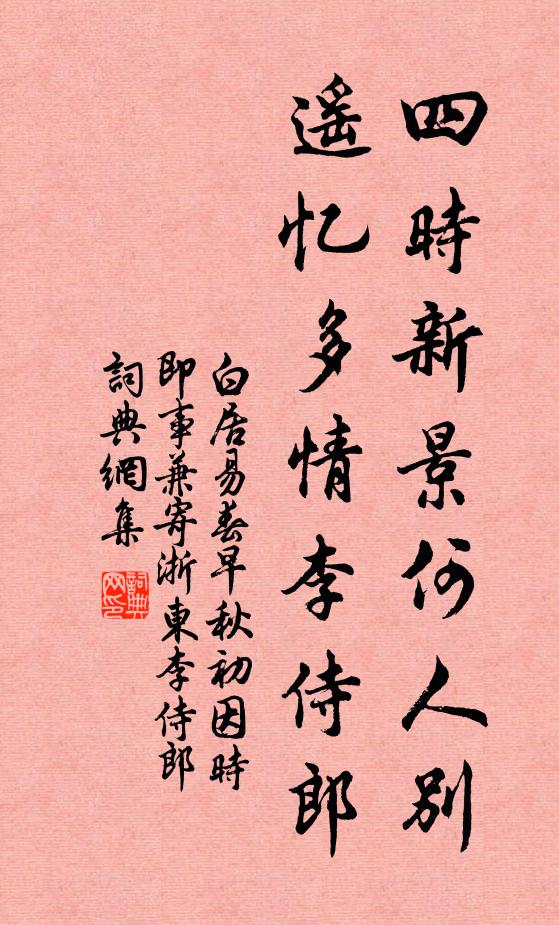 四時新景何人別
遥忆多情李侍郎
白居易春早秋初因時
即事兼寄浙東李侍郎
詞典網集
詞典網印